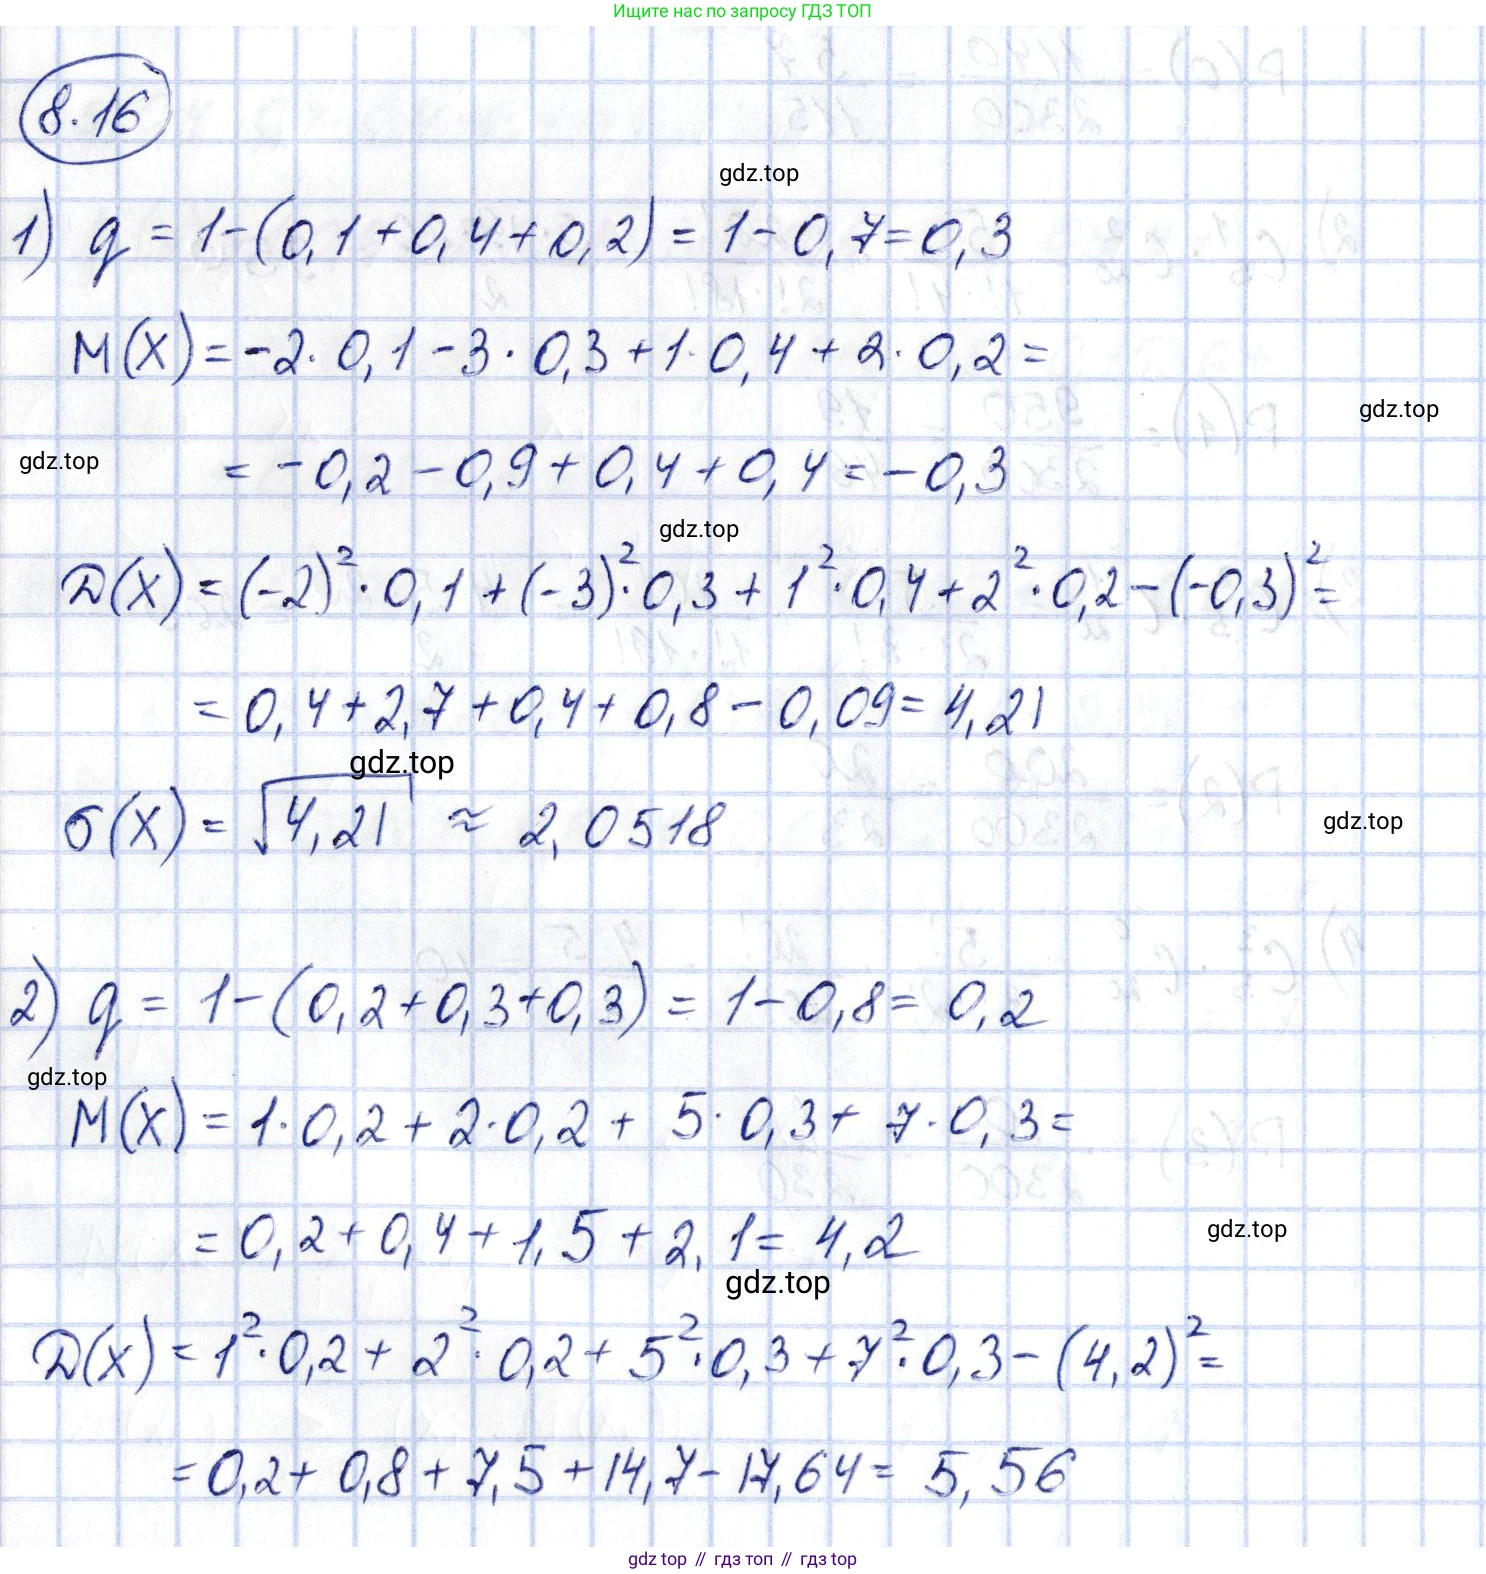 Ищите нас по запросу ГДЗ ТОП
8.16
gdz.top
1) q = 1-(0,1+0,4+0,2) = 1-0,7=0,3
M(X) = -2·0,1-3·0,3+1·0,4+2·0,2=
gdz.top
gdz.top
= -0,2-0,9+0,4+0,4=-0,3
gdz.top
D(X) = (-2)²·0,1+(-3)²·0,3+1²·0,4+2²·0,2-(-0,3)²=
= 0,4+2,7+0,4+0,8-0,09=4,21
gdz.top
σ(X) = √4,21 ≈ 2,0518
gdz.top
2) q = 1-(0,2+0,3+0,3) = 1-0,8= 0,2
gdz.top
M(X) = 1·0,2+2·0,2+5·0,3+7·0,3=
= 0,2+0,4+1,5+2,1= 4,2
gdz.top
gdz.top
D(X) = 1²·0,2+2²·0,2+5²·0,3+7²·0,3-(4,2)²=
=0,2+0,8+7,5+14,7-17,64= 5,56
gdz top // гдз топ // gdz top